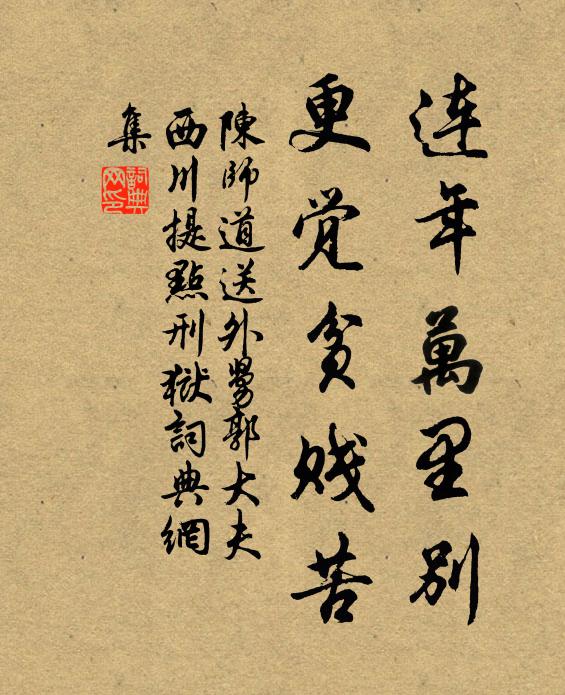 連年萬里別
更觉貧賤苦
陳師道送外舅郭大夫
西川提點刑獄詞典網
集
詞典
网印